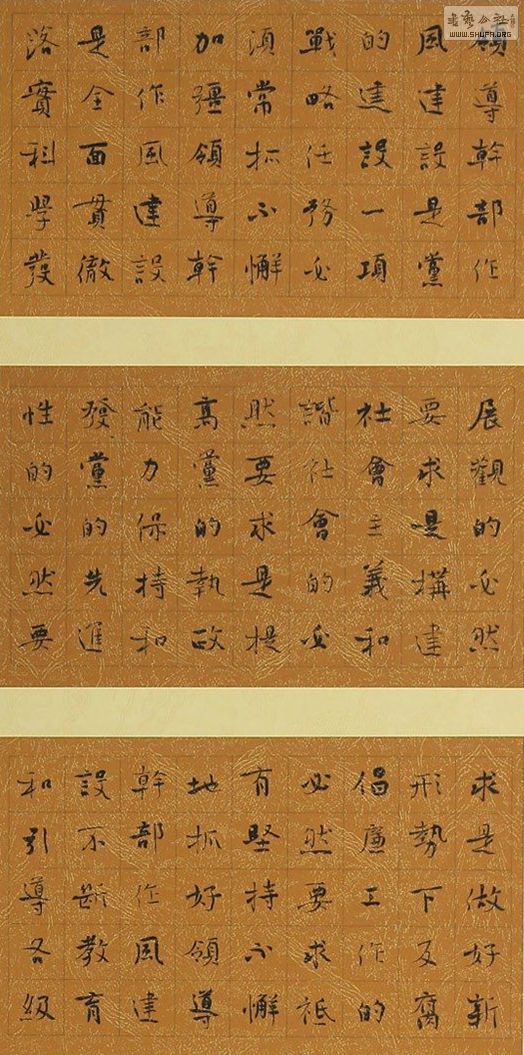 書藝公社
WWW.SHUFA.ORG
領導幹部作
風建設是黨
的建設一項
戰略任務必
須常抓不懈
加彊領導幹
部作風建設
是全面貫徹
洛實科學發
展觀的必然
要求是構建
社會主義和
諧社會的必
然要求是提
高黨的執政
能力保持和
發黨的先進
性的必然要
求是做好新
形勢下反腐
倡廉工作的
必然要求祇
有堅持不懈
地抓好領導
幹部作風建
設不斷教育
和引導各級